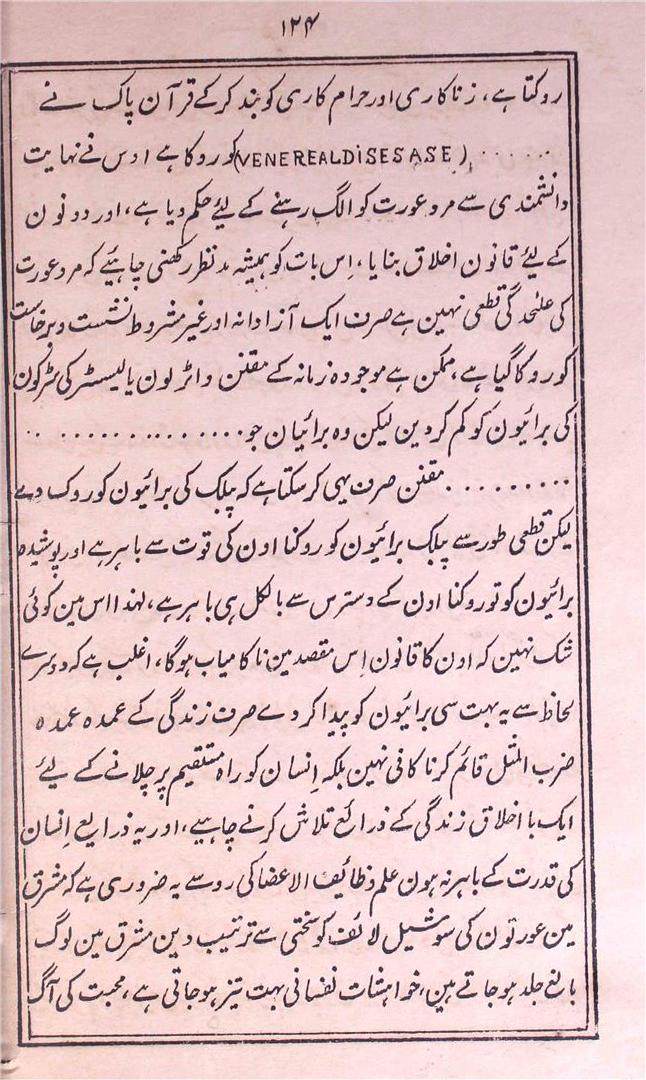 ۱۲۴
روکتا ہے، زناکاری اور حرام کاری کو بند کرکے قرآن پاک نے
...... (VENEREALDISESASE) کو روکا ہے اوس نے نہایت
دانشمندی سے مرد عورت کو الگ رہنے کے لیٔے حکم دیا ہے، اور دونون
کے لیٔے قانون اخلاق بنایا، اِس بات کو ہمیشہ مدنظر رکھنی چاہیٔے کہ مرد عورت
کی علٰحدگی قطعی نہین ہے صرف ایک آزادانہ اور غیر مشروط نشست وبرخاست
کو روکا گیا ہے، ممکن ہے موجودہ زمانہ کے مقنن واٹرلون یا لیسسٹر کی سڑکون
کی برائیون کو کم کردین لیکن وہ برائیان جو ..............
......... مقنن صرف یہی کرسکتا ہے کہ پبلک کی برائیون کو روک دے
لیکن قطعی طور سے پبلک برائیون کو روکنا اون کی قوت سے باہر ہے اور پوشیدہ
برائیون کو تو روکنا اون کے دسترس سے بالکل ہی باہر ہے، لہٰذا اس مین کوئی
شک نہین کہ اون کا قانون اِس مقصد مین ناکامیاب ہوگا، اغلب ہے کہ دوسرے
لحاظ سے یہ بہت سی برائیون کو پیدا کردے صرف زندگی کے عمدہ عمدہ
ضرب المثل قائم کرنا کافی نہین بلکہ اِنسان کو راہ مستقیم پر چلانے کے لیٔے
ایک با اخلاق زندگی کے ذرائع تلاش کرنے چاہیے، اور یہ ذرایع اِنسان
کی قدرت کے باہر نہ ہون علم وظائیف الاعضا کی رو سے یہ ضروری ہے کہ مشرق
مین عورتون کی سوشیل لائف کو سختی سے ترتیب دین مشرق مین لوگ
بالغ جلد ہوجاتے ہین، خواہشات نفسانی بہت تیز ہوجاتی ہے، محبت کی آگ